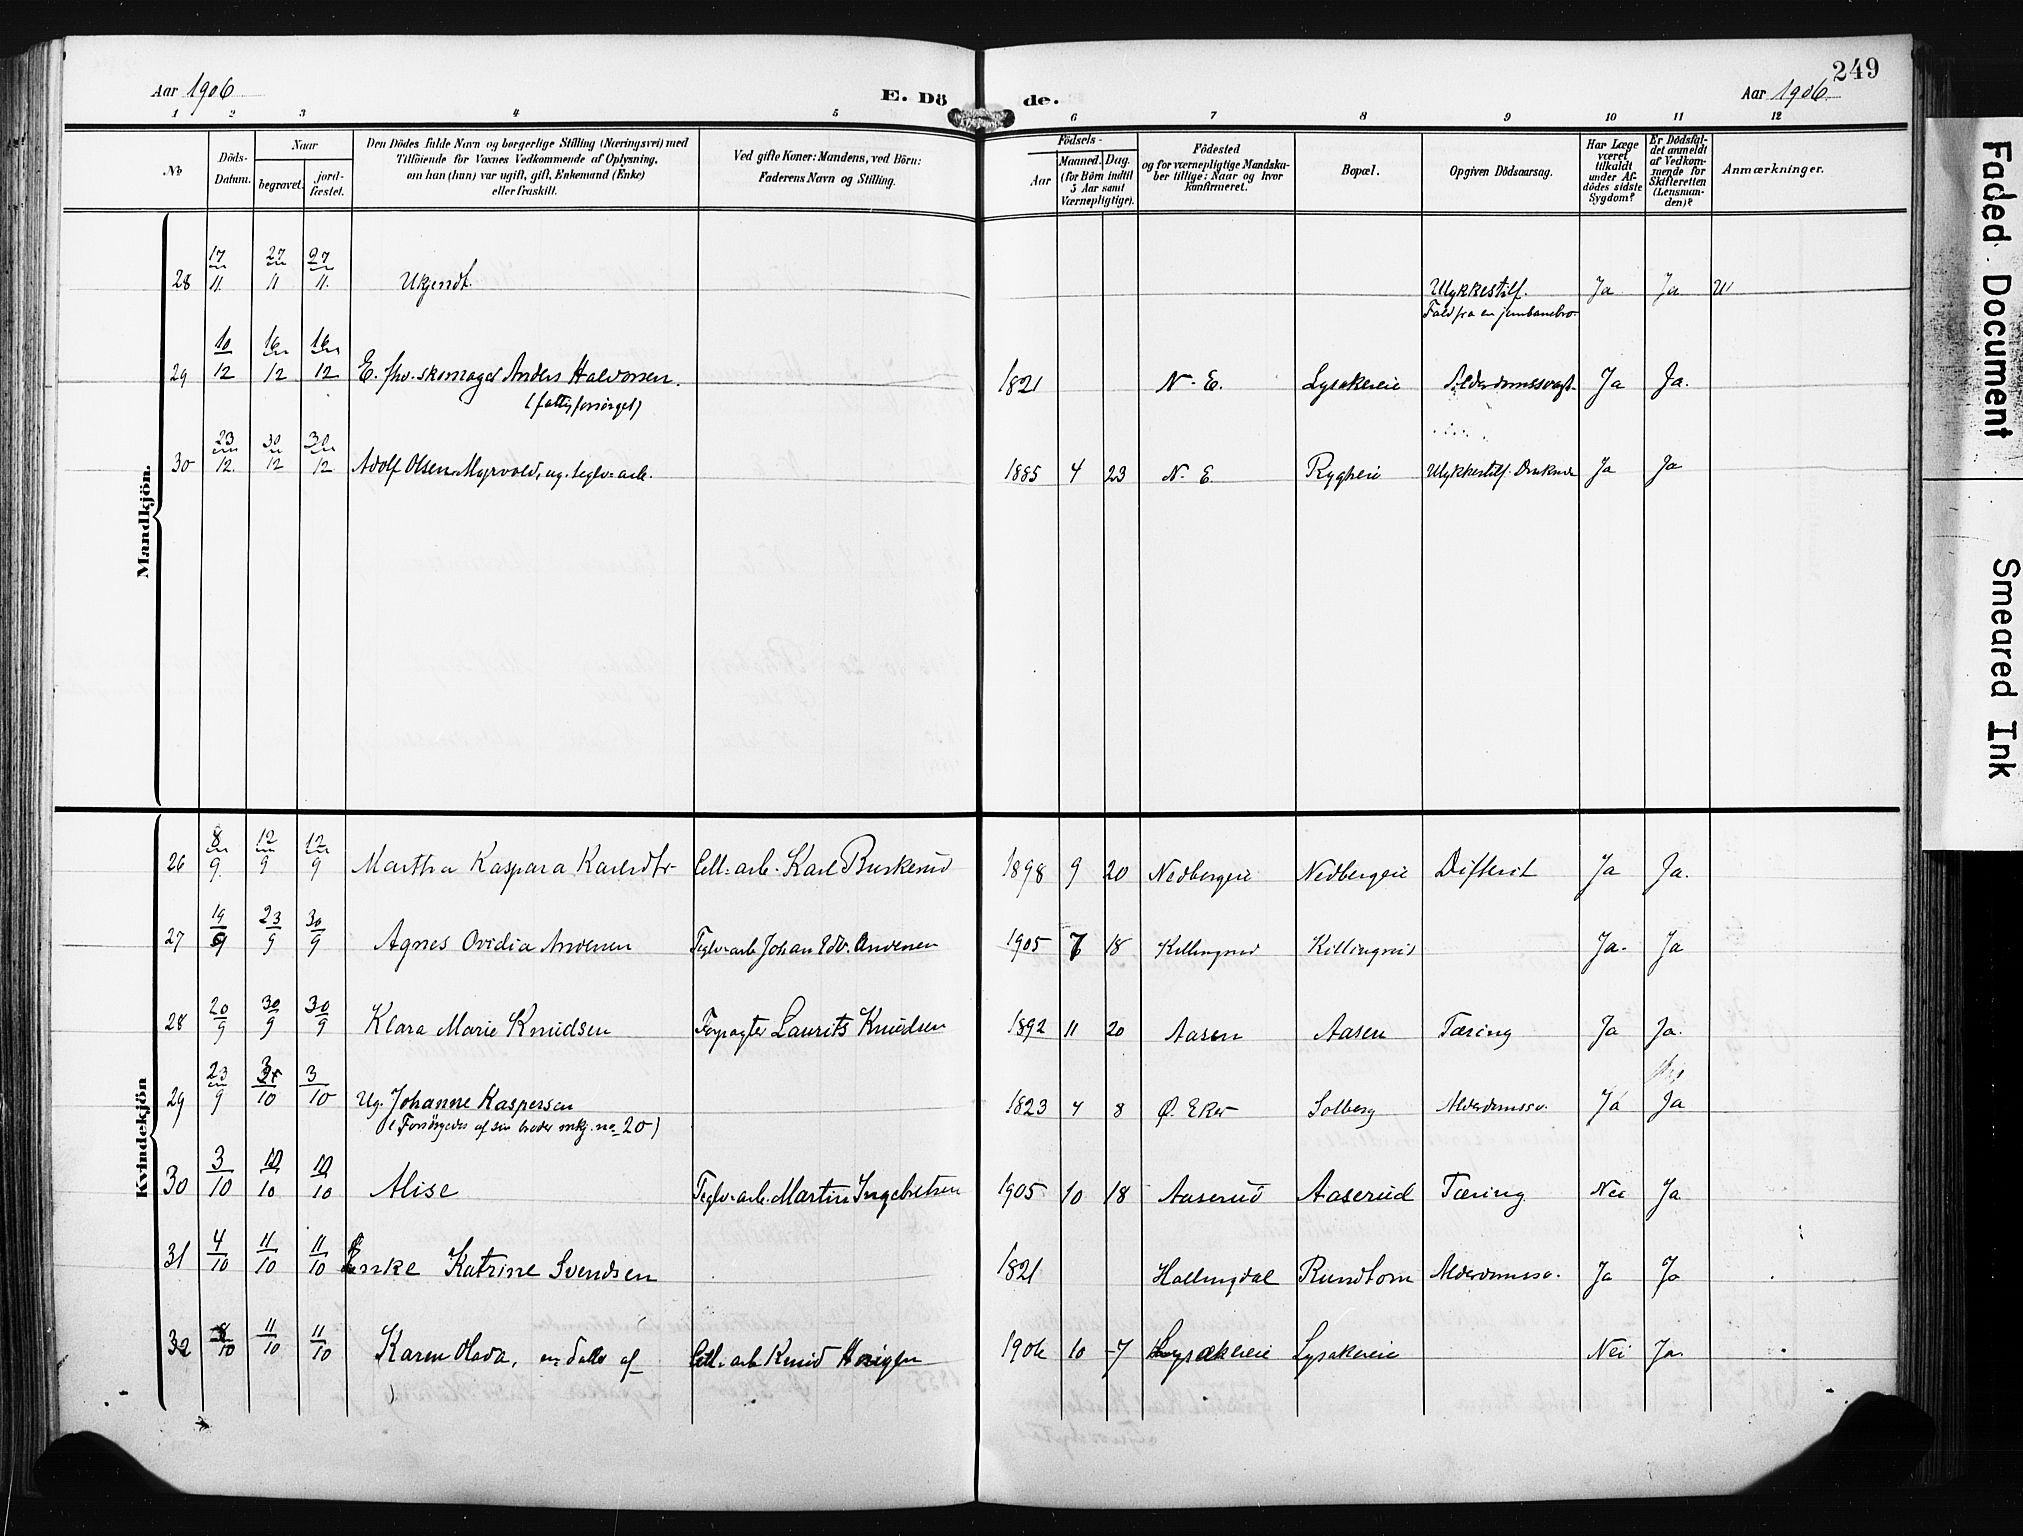 249
Aar 1906
E. Dö
de.
Aar 1906
1 2 3 4 5 6 7 8 9 10 11 12
No
Döds-
Datum.
Naar
begravet.
jord-
fæstet.
Den Dödes fulde Navn og borgerlige Stilling (Næringsvei) med
Tilföiende for Voxnes Vedkommende af Oplysning,
om han (hun) var ugift, gift, Enkemand (Enke)
eller fraskilt.
Ved gifte Koner: Mandens, ved Börn:
Faderens Navn og Stilling.
Födsels-
Aar
Maaned. Dag.
(for Börn indtil
5 Aar samt
Værnepligtige).
Födested
og for værnepligtige Mandska-
ber tillige: Naar og hvor
konfirmeret.
Bopæl.
Opgiven Dödsaarsag.
Har Læge
været
tilkaldt
under Af-
dödes sidste
Sygdom?
Er Dödsfal-
det anmeldt
af Vedkom-
mende for
Skifteretten
(Lensman-
den)?
Anmærkninger.
Mandkjön.
28 17/11 27/11 27/11 Ukjendt. Ulykkestilf. Ja Ja
Fald fra en jernbanebro.
29 10/12 16/12 16/12 E. fhv. skomager Anders Halvorsen. 1821 N. E. Lysakereie Alderdomssvagh. Ja Ja.
(fattigforsörget)
30 23/12 30/12 30/12 Adolf Olsen Myrvold, ug. teglv-arb. 1885 4 23 N. E. Rygheie Ulykkestilf. Druknede Ja Ja
Kvindekjön
26 8/9 12/9 12/9 Martha Kaspara Karlsdtr Cell-arb. Karl Buskerud 1898 9 20 Nedbergeie Nedbergeie Difterit Ja Ja.
27 19/9 23/9 30/9 Agnes Ovidia Andersen Teglv-arb Johan Edv. Andersen 1905 7 18 Killingrud Killingrud Ja. Ja
28 20/9 30/9 30/9 Klara Marie Knudsen Forpagter Laurits Knudsen 1892 11 20 Aasen Aasen Tæring Ja Ja.
29 23/9 3/10 3/10 Ug. Johanne Kaspersen 1823 4 8 Ø. Eker Solberg Alderdomssv. Ja Ja
(Forsörgedes af sin broder mkj. no 20)
30 3/10 10/10 10/10 Alise Teglv-arb. Martin Ingebretsen 1905 10 18 Aaserud Aaserud Tæring Nei Ja
31 4/10 11/10 11/10 Enke Katrine Svendsen 1821 Hallingdal Rundtom Alderdomssv. Ja Ja
32 8/10 11/10 11/10 Karen Olava, en datter af Cell-arb Knud 1906 10 7 Lysakereie Lysakereie Nei Ja
Faded Document
Smeared Ink